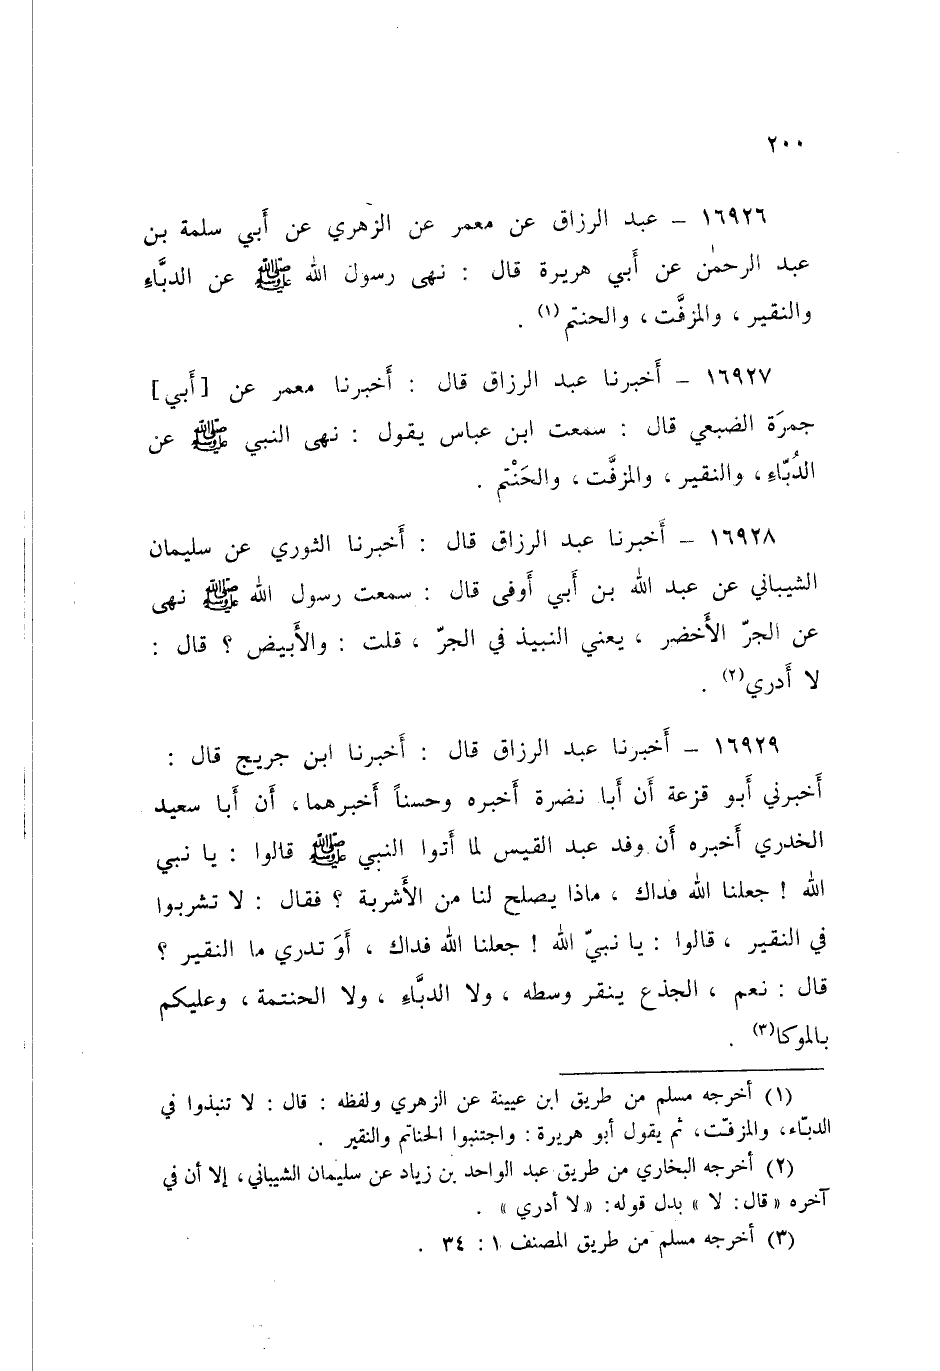 ٢٠٠
١٦٩٢٦ – عبد الرزاق عن معمر عن الزهري عن أَبي سلمة بن
عبد الرحمٰن عن أَبي هريرة قال : نهى رسول الله ﷺ عن الدبَّاءِ
والنقير ، والمزفَّت ، والحنتم (١) .
١٦٩٢٧ – أَخبرنا عبد الرزاق قال : أَخبرنا معمر عن [أَبي]
جمرَة الضبعي قال : سمعت ابن عباس يقول : نهى النبي ﷺ عن
الدُبّاءِ ، والنقير ، والمزفَّت ، والحَنْتم .
١٦٩٢٨ – أَخبرنا عبد الرزاق قال : أَخبرنا الثوري عن سليمان
الشيباني عن عبد الله بن أَبي أَوفى قال : سمعت رسول الله ﷺ نهى
عن الجرّ الأَخضر ، يعني النبيذ في الجرّ ، قلت : والأَبيض ؟ قال :
لا أَدري(٢) .
١٦٩٢٩ – أَخبرنا عبد الرزاق قال : أَخبرنا ابن جريج قال :
أَخبرني أَبو قزعة أَن أَبا نضرة أَخبره وحسناً أَخبرهما، أَن أَبا سعيد
الخدري أَخبره أَن وفد عبد القيس لما أَتوا النبي ﷺ قالوا : يا نبي
الله ! جعلنا الله فداك ، ماذا يصلح لنا من الأَشربة ؟ فقال : لا تشربوا
في النقير ، قالوا : يا نبيّ الله ! جعلنا الله فداك ، أَوَ تدري ما النقير ؟
قال : نعم ، الجذع ينقر وسطه ، ولا الدبَّاءِ ، ولا الحنتمة ، وعليكم
بالموكا(٣) .
(١) أخرجه مسلم من طريق ابن عيينة عن الزهري ولفظه : قال : لا تنبذوا في
الدبّاء، والمزفّت، ثم يقول أبو هريرة : واجتنبوا الحناتم والنقير .
(٢) أخرجه البخاري من طريق عبد الواحد بن زياد عن سليمان الشيباني، إلا أن في
آخره « قال: لا » بدل قوله: « لا أدري » .
(٣) أخرجه مسلم من طريق المصنف ١ : ٣٤ .